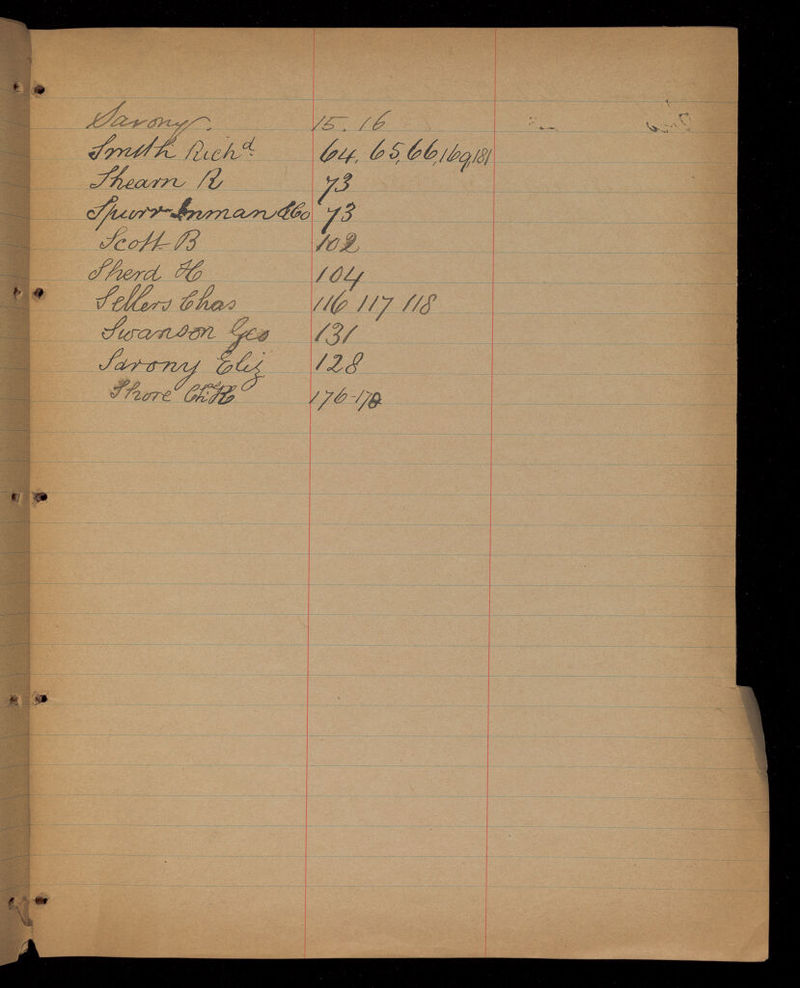 Savony. 15. 16
Smith Richd 64, 65, 66, 169, 181
Shearn R 73
Spurr Inman & Co 73
Scott B 102
Sherd H 104
Sellers Chas 116 117 118
Swanson Geo 131
Savony Eliz 128
Shore 176-178